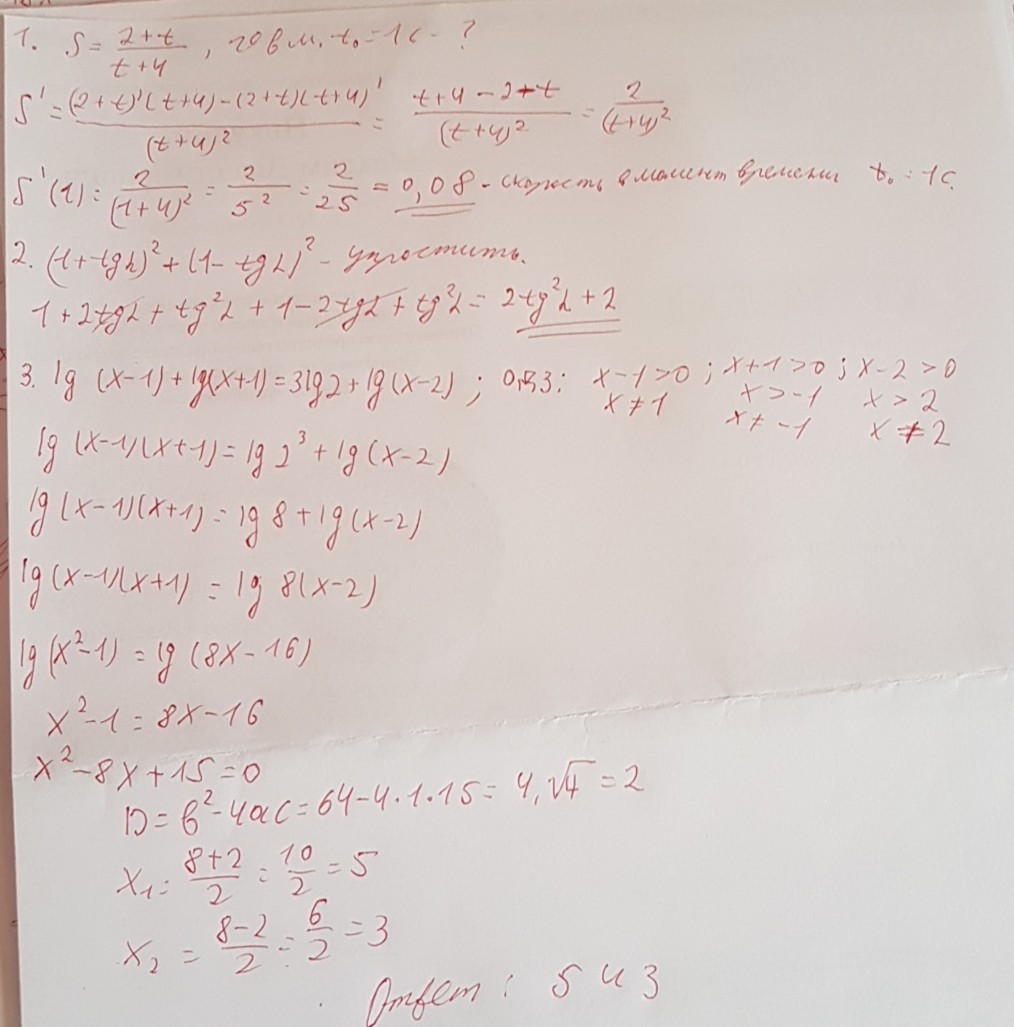 1. S = (2+t)/(t+4), го в м. t₀ = 1с - ?
S' = ((2+t)'(t+4) - (2+t)(t+4)')/(t+4)² = (t+4-2-t)/(t+4)² = 2/(t+4)²
S'(1) = 2/(1+4)² = 2/5² = 2/25 = 0,08 - скорость в момент времени t₀ = 1с.
2. (1+tgα)² + (1-tgα)² - упростить.
1 + 2tgα + tg²α + 1 - 2tgα + tg²α = 2tg²α + 2
3. lg (x-1) + lg(x+1) = 3lg2 + lg(x-2) ; ОДЗ: x-1>0 ; x+1>0 ; x-2>0
x≠1 x>-1 x>2
x≠-1 x≠2
lg (x-1)(x+1) = lg 2³ + lg (x-2)
lg (x-1)(x+1) = lg 8 + lg (x-2)
lg (x-1)(x+1) = lg 8(x-2)
lg (x²-1) = lg (8x-16)
x²-1 = 8x-16
x²-8x+15=0
D = b²-4ac = 64-4·1·15 = 4, √4 = 2
x₁ = (8+2)/2 = 10/2 = 5
x₂ = (8-2)/2 = 6/2 = 3
Ответ : 5 и 3